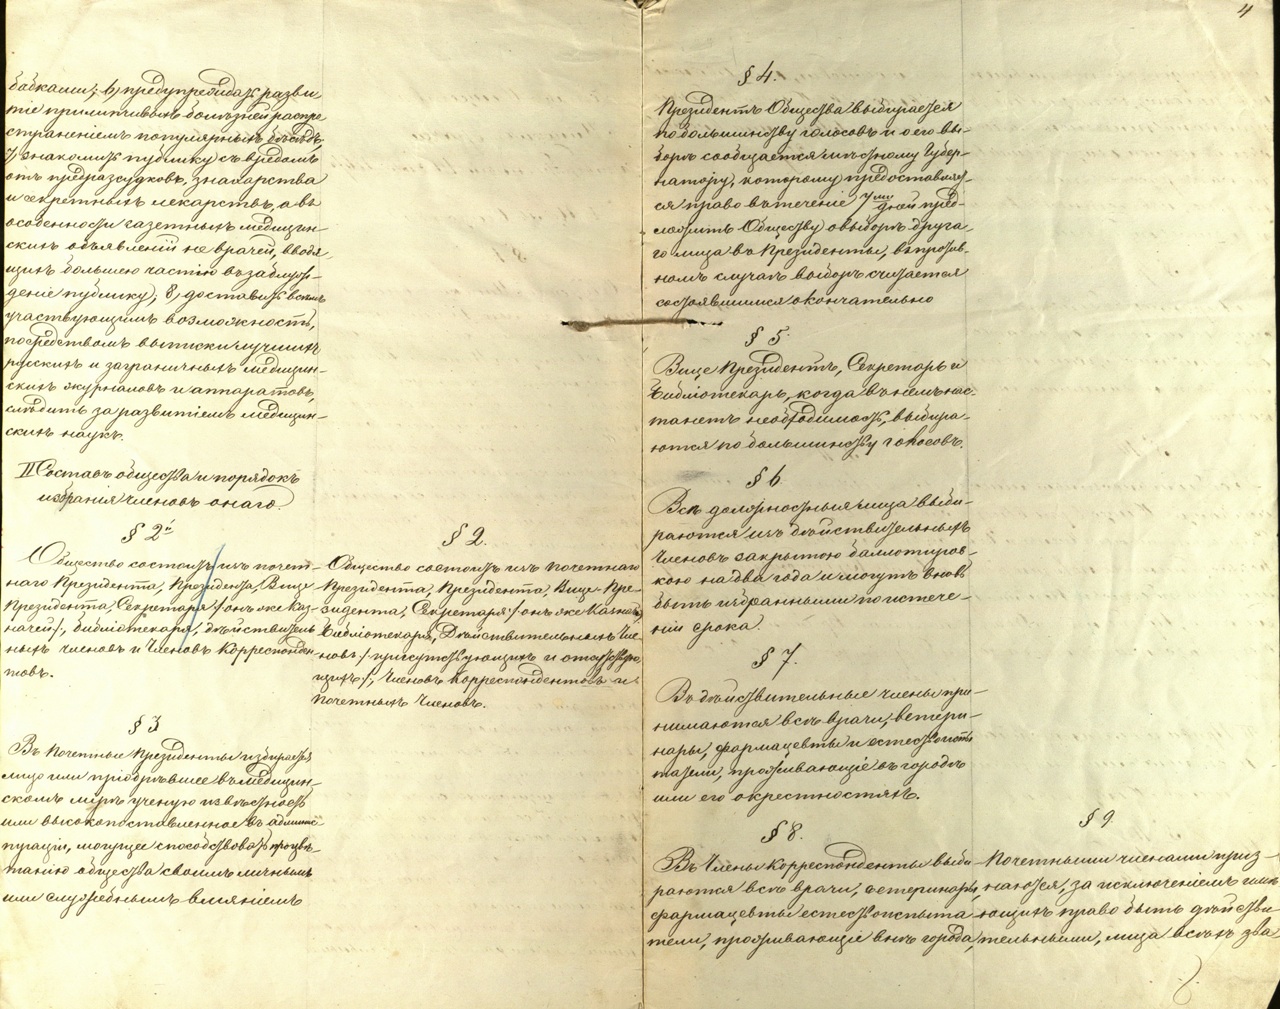 4
бабками; 6, предупреждать разви
тіе прилипчивыхъ болѣзней распро
страненіемъ популярныхъ бесѣдъ,
7, знакомить публику съ вредомъ
отъ предразсудковъ, знахарства
и секретныхъ лекарствъ, а въ
особенности газетныхъ медицин-
скихъ объявленій не врачей, вводя
щихъ большею частію въ заблуж-
деніе публику; 8, доставить всѣмъ
участвующимъ возможность,
посредствомъ выписки лучшихъ
русскихъ и заграничныхъ медицин-
скихъ журналовъ и аппаратовъ,
слѣдить за развитіемъ медицин-
скихъ наукъ.
II Составъ общества и порядокъ
избранія членовъ онаго.
§ 2й
Общество состоитъ изъ почет-
наго Президента, Президента, Вице
Президента, Секретаря /:онъ же Каз-
начей:/, библіотекаря, дѣйствитель
ныхъ членовъ и Членовъ Корреспонден
товъ.
§ 3
Въ Почетные Президенты избирается
лицо или пріобрѣвшее въ медицин-
скомъ мірѣ ученую извѣстность
или высокопоставленное въ админис
траціи, могущее способствовать процвѣ-
танію общества своимъ личнымъ
или служебнымъ вліяніемъ
§ 2.
Общество состоитъ изъ Почетнаго
Президента, Президента, Вице-Пре-
зидента, Секретаря /:онъ же Казначей,
Библіотекаря, Дѣйствительныхъ Чле-
новъ /:присутствующихъ и отсутствую-
щихъ:/, Членовъ Корреспондентовъ и
Почетныхъ Членовъ.
§ 4.
Президентъ Общества выбирается
по большинству голосовъ и о его вы-
борѣ сообщается мѣстному Губер-
натору, которому предоставляет-
ся право въ теченіе 7ми дней пред-
ложить Обществу о выборѣ друга-
го лица въ Президенты, въ против-
номъ случаѣ выборъ считается
состоявшимся окончательно
§ 5.
Вице Президентъ, Секретарь и
Библіотекарь, когда въ немъ нас-
танетъ необходимость, выбира-
ются по большинству голосовъ.
§ 6
Всѣ должностныя лица выби-
раются изъ дѣйствительныхъ
Членовъ закрытою баллотиров-
кою на два года и могутъ вновь
быть избранными по истече-
ніи срока.
§ 7.
Въ дѣйствительные члены при-
нимаются всѣ врачи, ветери-
нары, фармацевты и естествоиспы
татели, проживающіе въ городѣ
или его окрестностяхъ.
§ 8.
Въ Члены Корреспонденты выби-
раются всѣ врачи, ветеринары,
фармацевты естествоиспыта-
тели, проживающіе внѣ города,
§ 9
Почетными членами приз-
наются, за исключеніемъ имѣ
ющихъ право быть дѣйстви-
тельными, лица всѣхъ зва